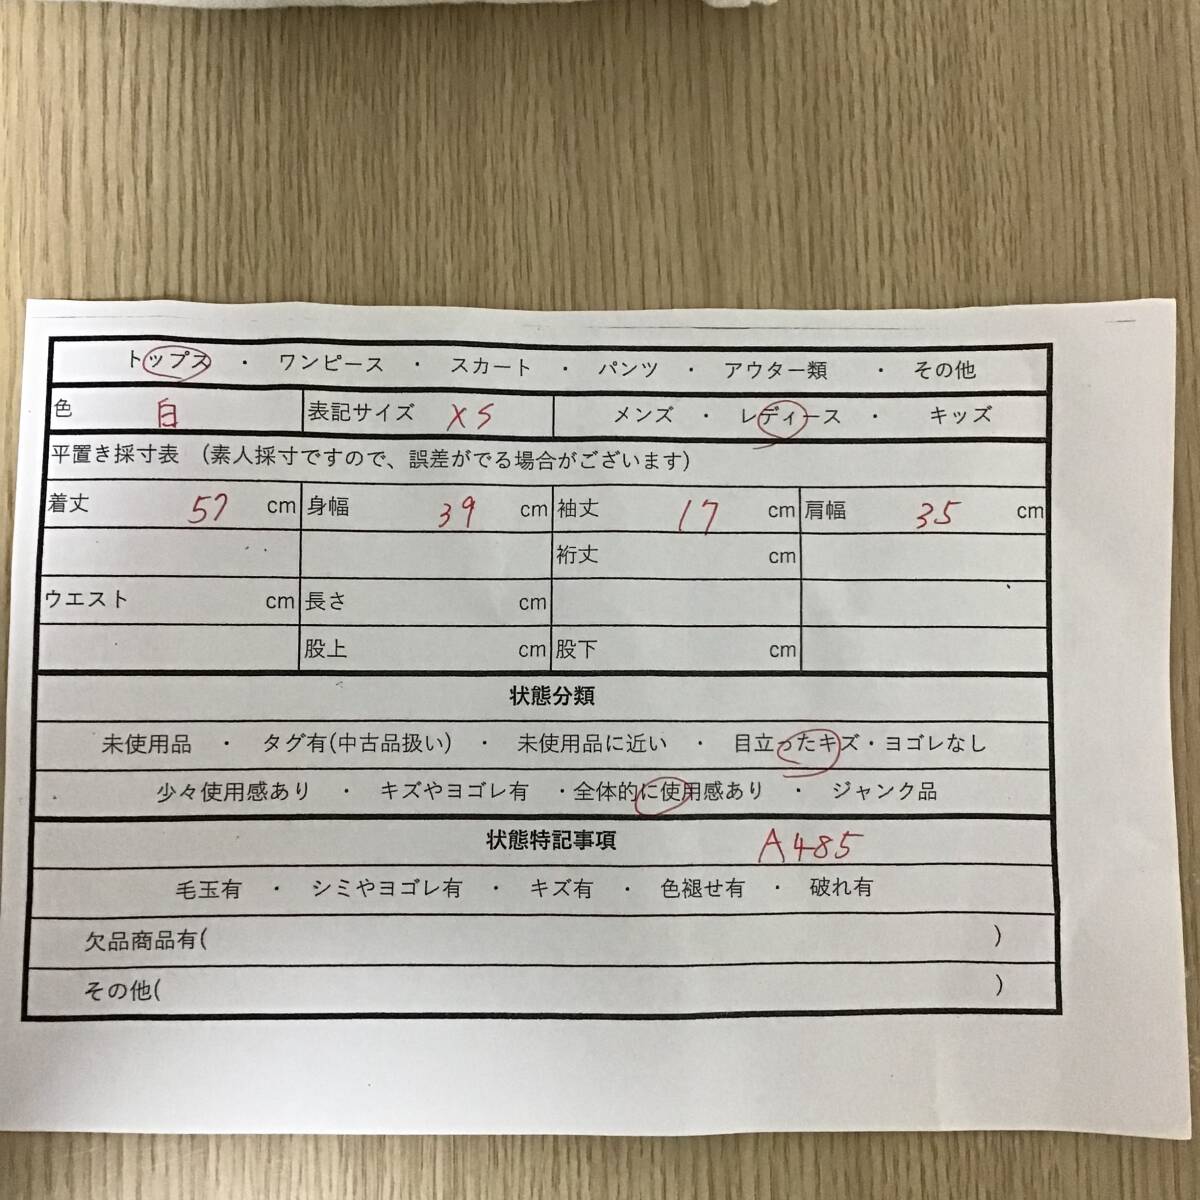 トップス ・ ワンピース ・ スカート ・ パンツ ・ アウター類 ・ その他
色 白 表記サイズ XS メンズ ・ レディース ・ キッズ
平置き採寸表 (素人採寸ですので、誤差がでる場合がございます)
着丈 57 cm 身幅 39 cm 袖丈 17 cm 肩幅 35 cm
裄丈 cm
ウエスト cm 長さ cm
股上 cm 股下 cm
状態分類
未使用品 ・ タグ有(中古品扱い) ・ 未使用品に近い ・ 目立ったキズ・ヨゴレなし
少々使用感あり ・ キズやヨゴレ有 ・全体的に使用感あり ・ ジャンク品
状態特記事項 A485
毛玉有 ・ シミやヨゴレ有 ・ キズ有 ・ 色褪せ有 ・ 破れ有
欠品商品有( )
その他( )